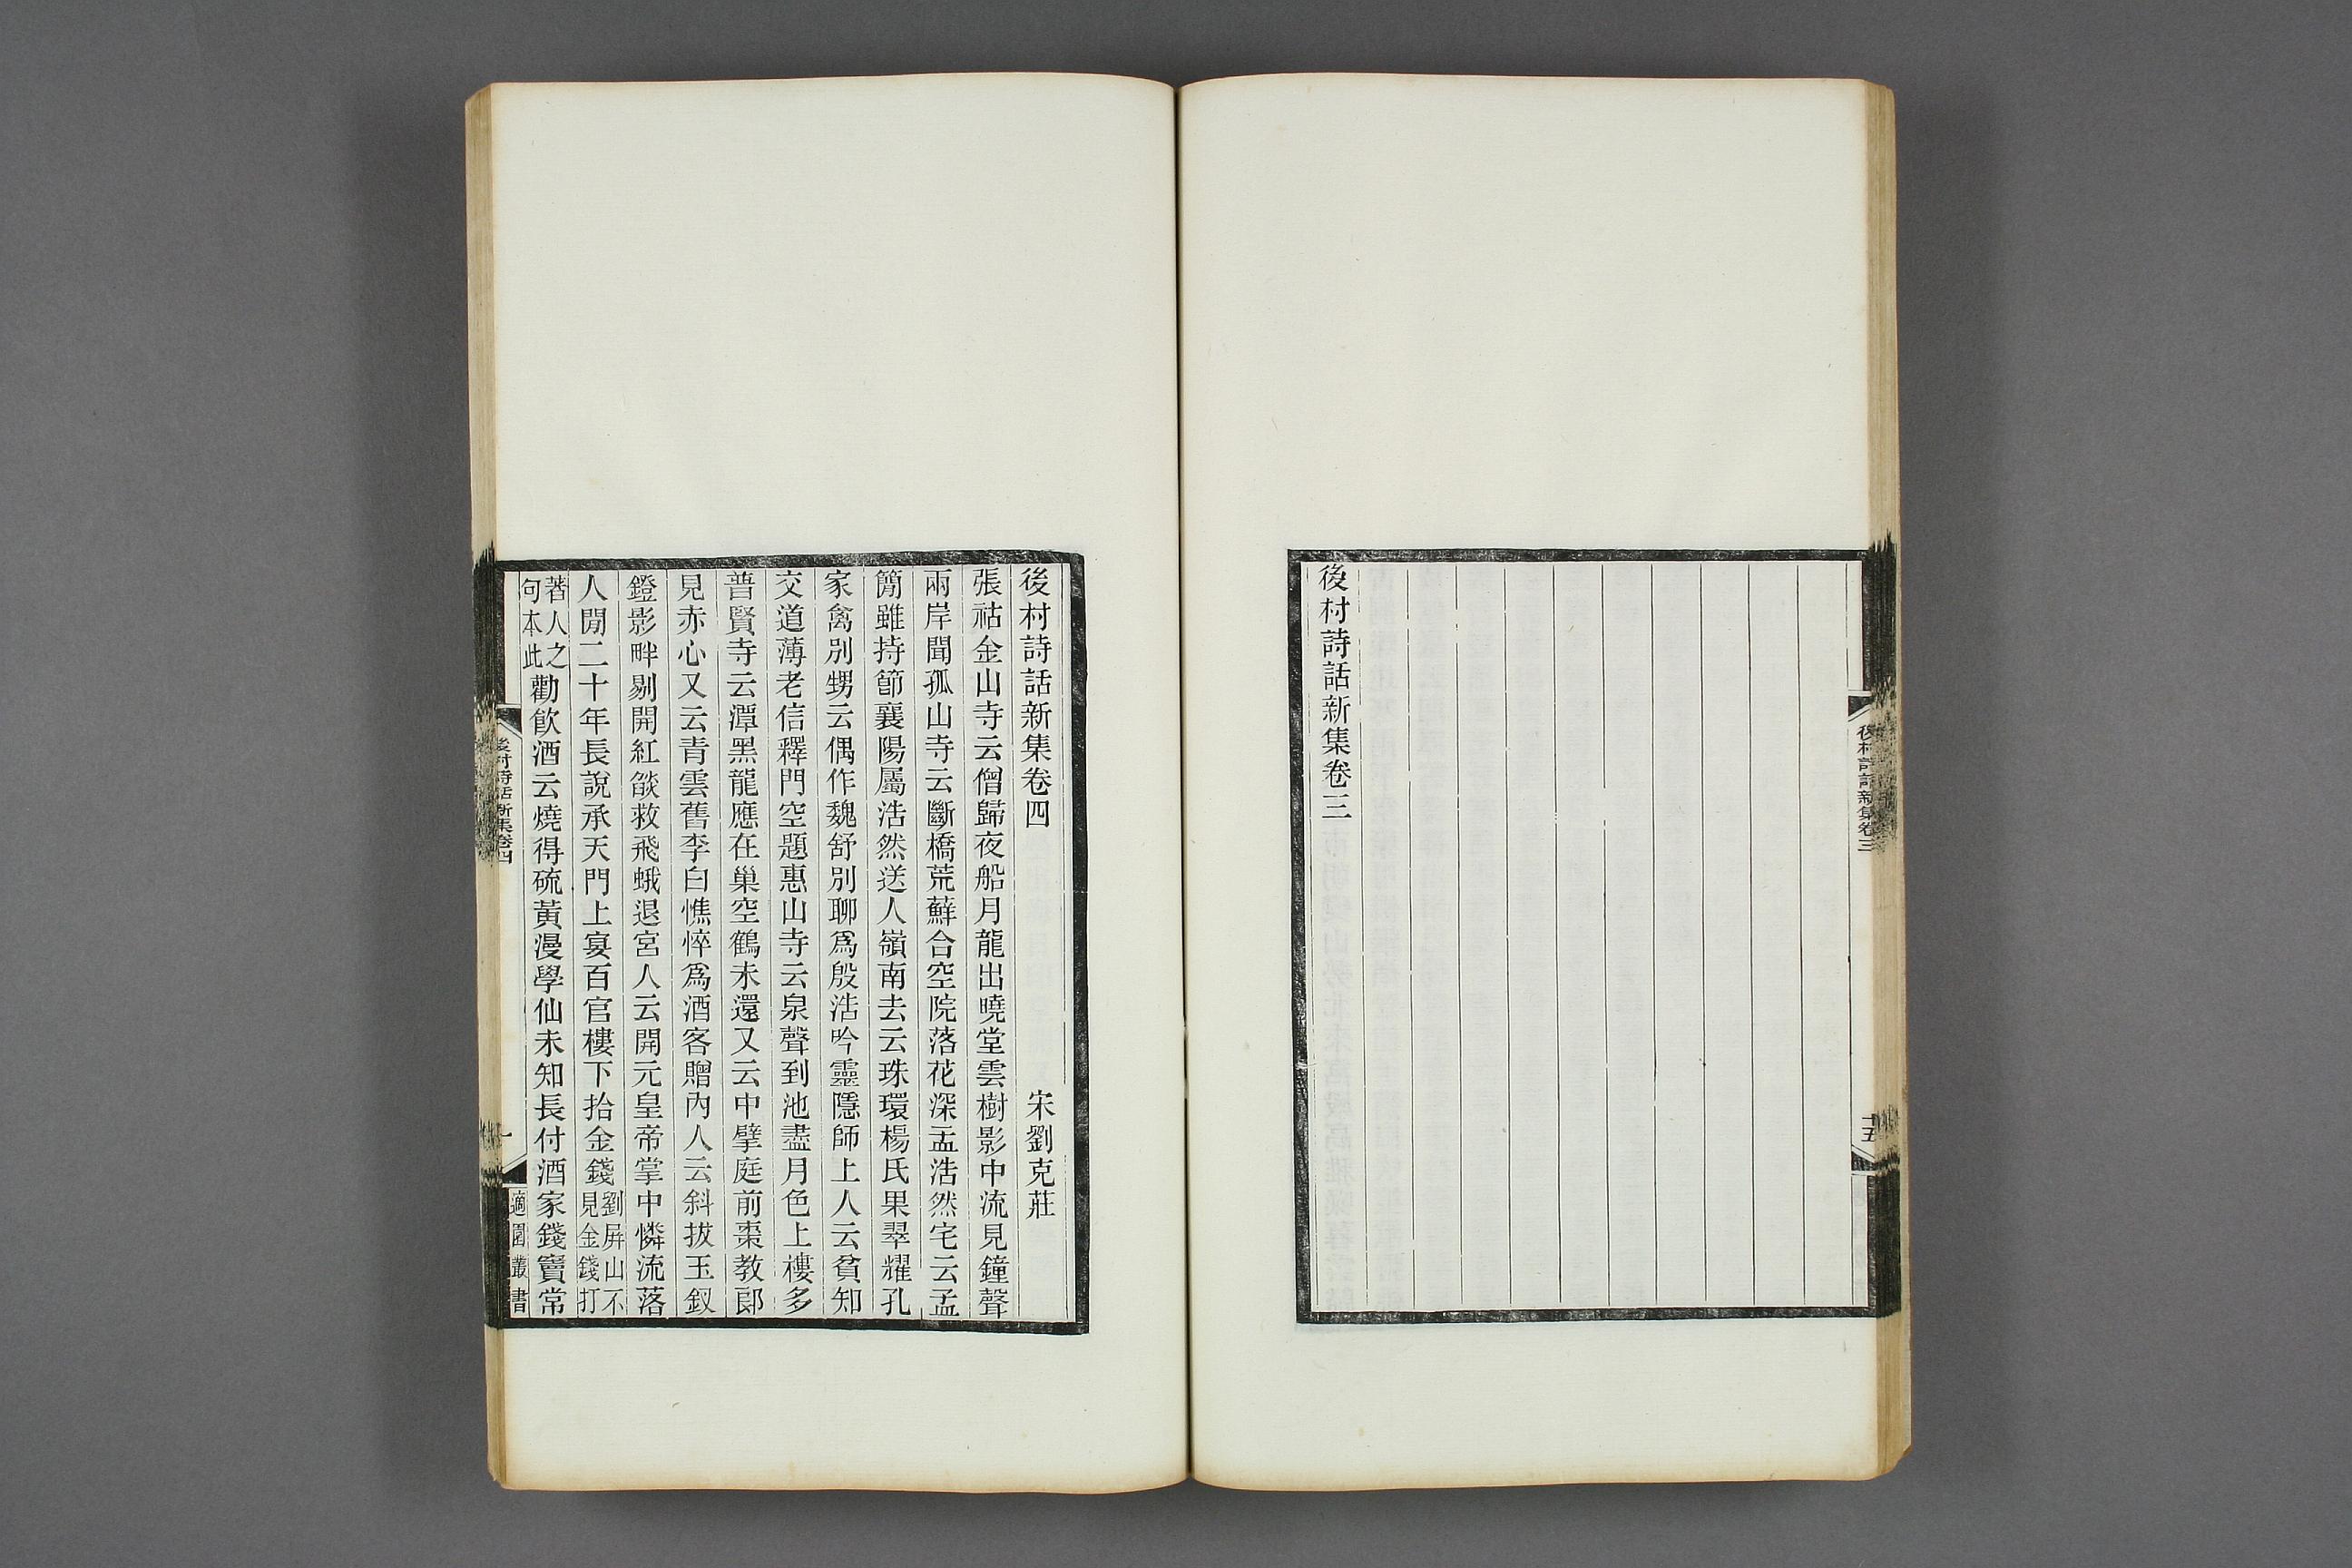 後村詩話新集卷三
後村詩話新集卷三
十五
後村詩話新集卷四 宋劉克莊
張祜金山寺云僧歸夜船月龍出曉堂雲樹影中流見鐘聲
兩岸聞孤山寺云斷橋荒蘚合空院落花深孟浩然宅云孟
簡雖持節襄陽屬浩然送人嶺南去云珠環楊氏果翠耀孔
家禽別甥云偶作魏舒別聊爲殷浩吟靈隱師上人云貧知
交道薄老信釋門空題惠山寺云泉聲到池盡月色上樓多
普賢寺云潭黑龍應在巢空鶴未還又云中擘庭前棗教郎
見赤心又云青雲舊李白憔悴爲酒客贈內人云斜拔玉釵
鐙影畔剔開紅燄救飛蛾退宮人云開元皇帝掌中憐流落
人閒二十年長說承天門上宴百官樓下拾金錢劉屏山不見金錢打
著人之句本此勸飮酒云燒得硫黃漫學仙未知長付酒家錢竇常
後村詩話新集卷四
一
適園叢書